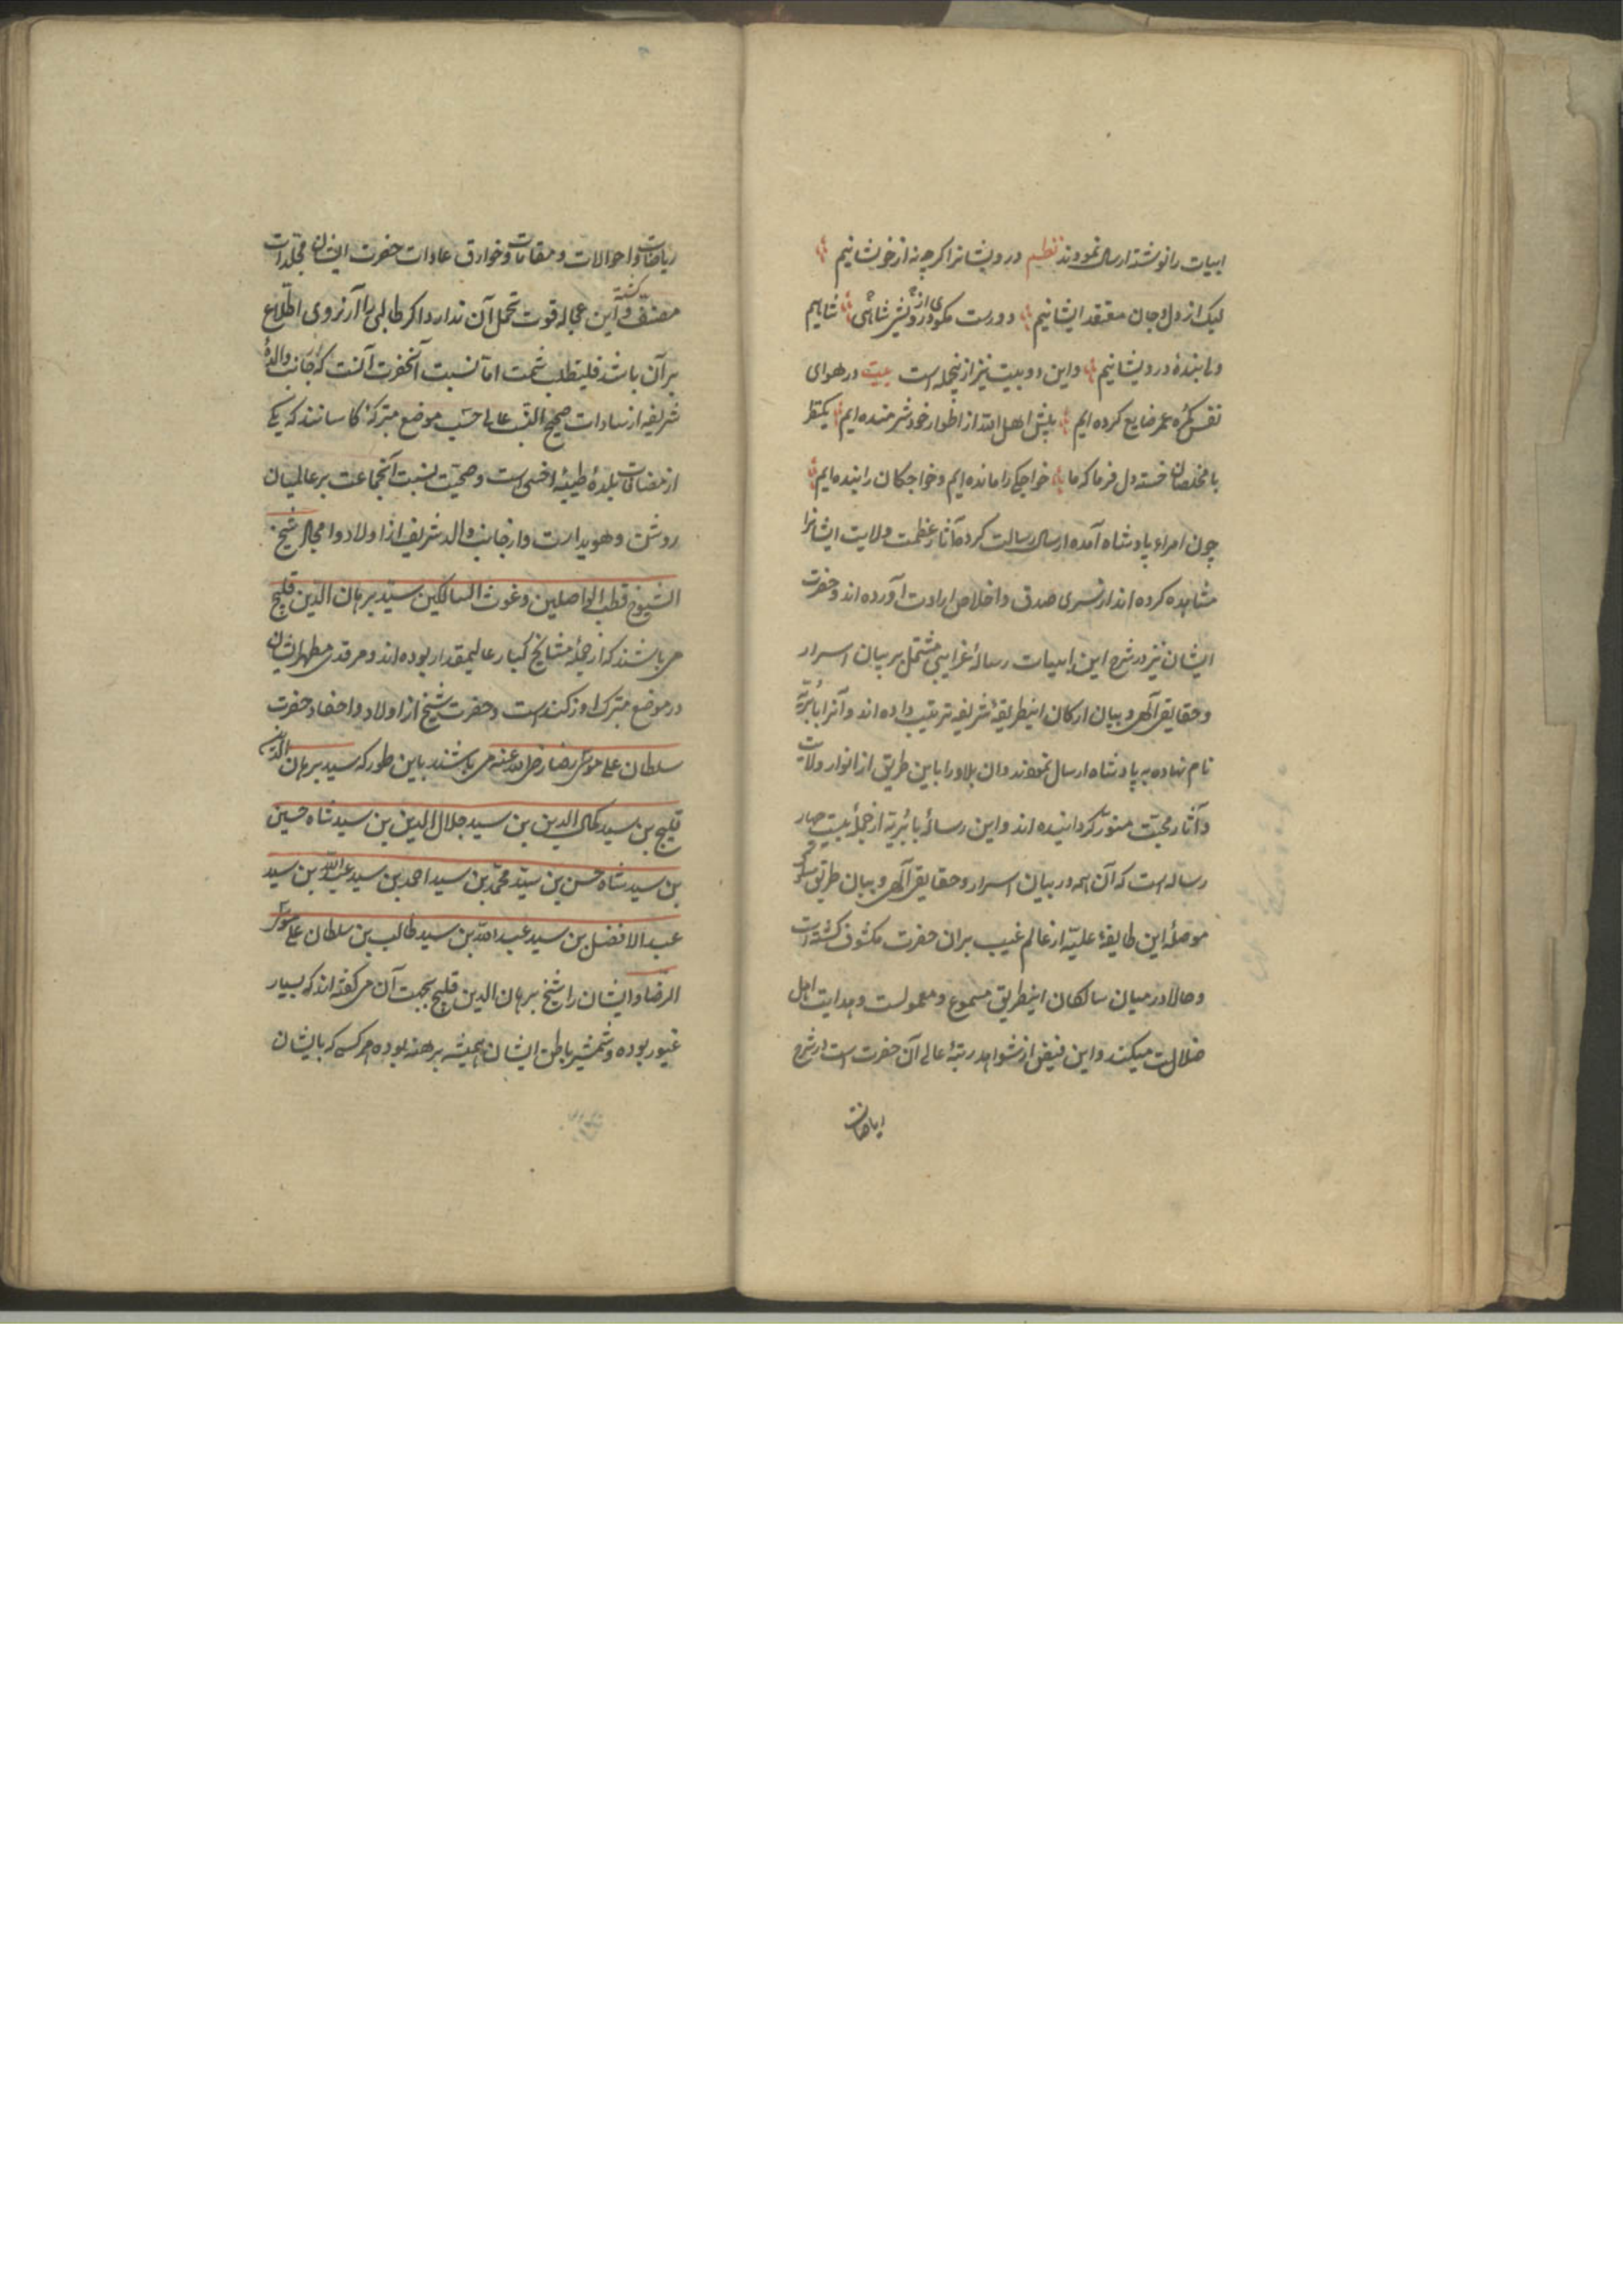 ابیات را نوشته ارسال نمودند نظم درویشانرا اکرچه نه از خویشانیم
لیک از دل و جان معتقد ایشانیم دورست مکوی شاهی از درویشی شاهیم
ولی بندهٔ درویشانیم و این دو بیت نیز از آنجمله است بیت در هوای
نفس کمره عمر ضایع کرده ایم پیش اهل الله از اطوار خود شرمنده ایم یکنظر
با مخلصان خسته دل فرما که ما خواجکی را مانده ایم و خواجکان را بنده ایم
چون امراء پادشاه آمده ارسال رسالت کرده آثار عظمت ولایت ایشانرا
مشاهده کرده اند از سر صدق و اخلاص ارادت آورده اند و حضرت
ایشان نیز در شرح این ابیات رسالهٔ غرایبی مشتمل بر بیان اسرار
و حقایق آلهی و بیان ارکان اینطریقهٔ شریفه ترتیب داده اند و آنرا بابریه
نام نهاده به پادشاه ارسال نمودند و ان بلاد را باین طریق از انوار ولایت
و آثار محبت منور کردانیده اند و این رسالهٔ بابریه از جملهٔ بیست چهار
رساله است که آن همه در بیان اسرار و حقایق آلهی و بیان طریق سلوک
موصلهٔ این طایفهٔ علیه از عالم غیب بران حضرت مکشوف کشته است
و حالا در میان سالکان اینطریق مسموع و معمولست و هدایت اهل
ضلالت میکند و این فیض از شواهد رتبهٔ عالی آن حضرت است در شرح
ریاضات
ریاضات و احوالات و مقامات و خوارق عادات حضرت ایشان مجلدات
مصنف کشته و این عجاله قوت تحمل آن ندارد اکر طالبی را آرزوی اطلاع
بر آن باشد فلیطلب ثمت اما نسبت آنحضرت آنست که از جانب والدهٔ
شریفه از سادات صحیح النسب عالی حسب موضع متبرکهٔ کاسانند که یکی
از مضافات بلدهٔ طیبهٔ اخسی است و صحیت نسبت آنجماعت بر عالمیان
روشن و هویداست و از جانب والد شریف از اولاد و امجاد شیخ
الشیوخ قطب الواصلین و غوث السالکین سید برهان الدین قلیج
می باشند که از جملهٔ مشایخ کبار عالیمقدار بوده اند و مرقد مطهر ایشان
در موضع متبرک اوزکند است و حضرت شیخ از اولاد و احفاد حضرت
سلطان علی موسی رضا رضی الله عنه می باشند باین طور که سید برهان الدین
قلیج بن سید کمال الدین بن سید جلال الدین بن سید شاه حسین
بن سید شاه حسن بن سید محمد بن سید احمد بن سید عبدالله بن سید
عبد الافضل بن سید عبد الله بن سید طالب بن سلطان علی موسی
الرضا و ایشان را شیخ برهان الدین قلیج بجهت آن می کفته اند که بسیار
غیور بوده و شمشیر باطن ایشان همیشه برهنه بوده هر کسی که بایشان